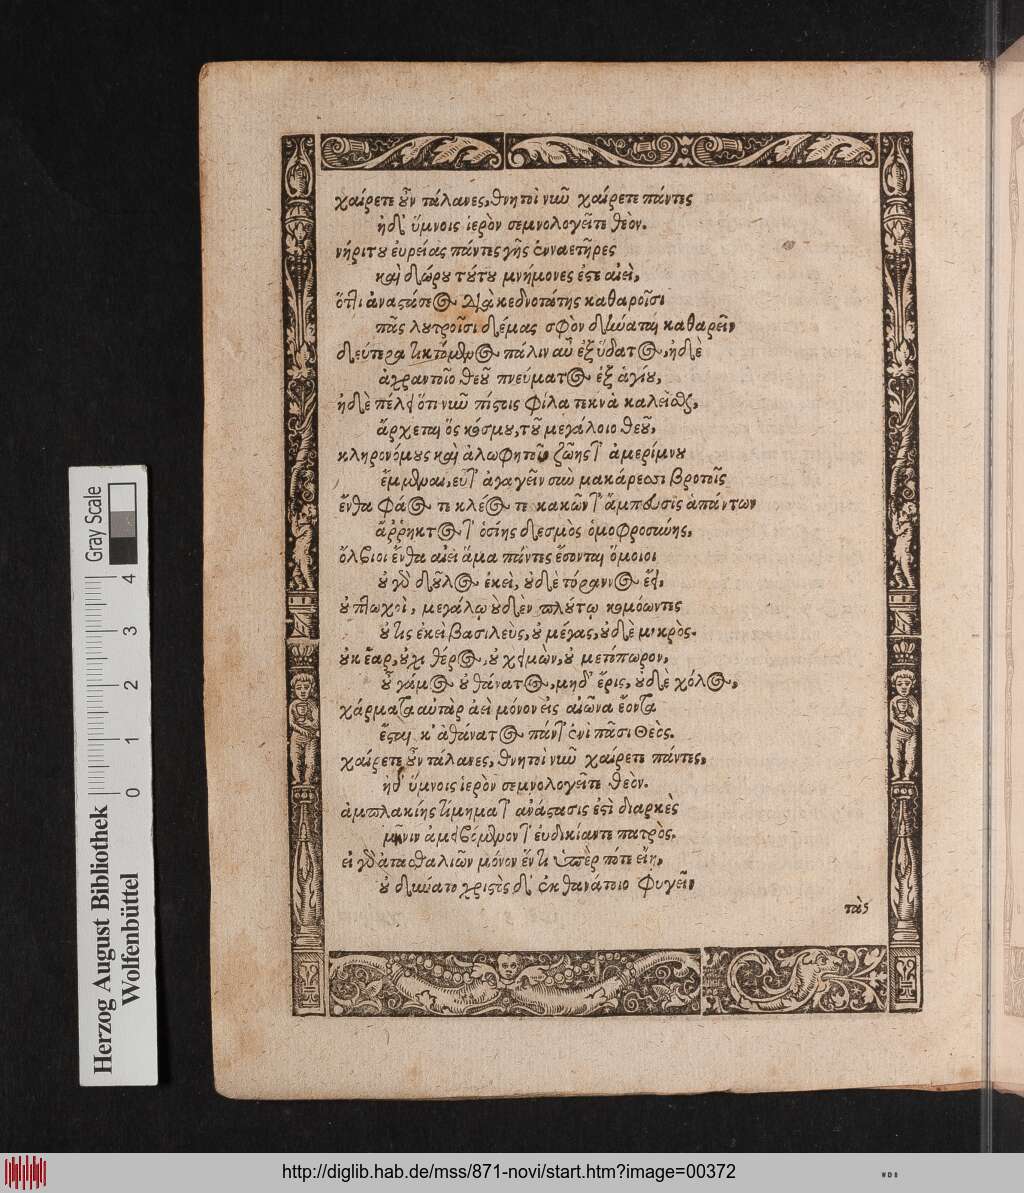 χαίρετε οὖν τάλανες, θνητοὶ νιῶ χαίρετε πάντες
ἠδ' ὕμνοις ἱερὸν σεμνολογεῖτε θεόν.
νήριτου εὐρείας πάντες γῆς ἐνναετῆρες
καὶ δώρου τούτου μνήμονες ἐστε αἰεὶ,
ὅττι ἀναστάσεος διὰ κεδνοτάτης καθαροῖσι
πᾶς λουτροῖσι δέμας σφὸν δύναται καθαρεῖν
δεύτερα τικτόμενος πάλιν αὖ ἐξ ὕδατος, ἠδὲ
ἀχραντοῖο θεοῦ πνεύματος ἐξ ἁγίου,
ἠδὲ πέλει ὅτι νιῶ πίστις φίλα τεκνὰ καλεῖσθαι,
ἄρχεται ὃς κόσμου, τοῦ μεγάλοιο θεοῦ,
κληρονόμους καὶ ἀλωφητοῦ ζωῆς τ' ἀμερίμνου
ἔμμεναι, εὖτ' ἀγαγεῖν σιω μακάρεσσι βροτοῖς
ἔνθα φάος τε κλέος τε κακῶν τ' ἄμπαυσις ἁπάντων
ἄῤῥηκτος τ' ὁσίης δεσμὸς ὁμοφροσύνης,
ὄλβιοι ἔνθα αἰεὶ ἅμα πάντες ἔσονται ὅμοιοι
οὐ γὰρ δοῦλος ἐκεῖ, οὐδὲ τύραννος ἔσει,
οὐ πτωχοὶ, μεγάλῳ οὐδὲν πλούτῳ κομόωντες
οὔτις ἐκεῖ βασιλεὺς, οὐ μέγας, οὐδὲ μικρὸς.
οὐκ ἔαρ, οὐχι θέρος, οὐ χειμὼν, οὐ μετόπωρον,
οὐ γάμος οὐ θάνατος, μηδ' ἔρις, οὐδὲ χόλος,
χάρματα αὐτὰρ ἀεὶ μόνον εἰς αἰῶνα ἔοντα
ἔσται κ' ἀθάνατος πάντ' ἐνὶ πᾶσι θεὸς.
χαίρετε οὖν τάλανες, θνητοὶ νιῶ χαίρετε πάντες,
ἠδ' ὕμνοις ἱερὸν σεμνολογεῖτε θεὸν.
ἀμπλακίης τίμημα τ' ἀνάστασις ἐστὶ διαρκὲς
μῆνιν ἀμειβόμενον τ' εὐδικίαντε πατρὸς.
εἰ γὰρ ἀτασθαλιῶν μόνον ἕν τι ὑπὲρ πότε εἴη,
οὐ δύνατο χριστὸς δ' ἐκ θανάτοιο φυγεῖν
τὰς
Gray Scale
0 1 2 3 4
Herzog August Bibliothek
Wolfenbüttel
http://diglib.hab.de/mss/871-novi/start.htm?image=00372